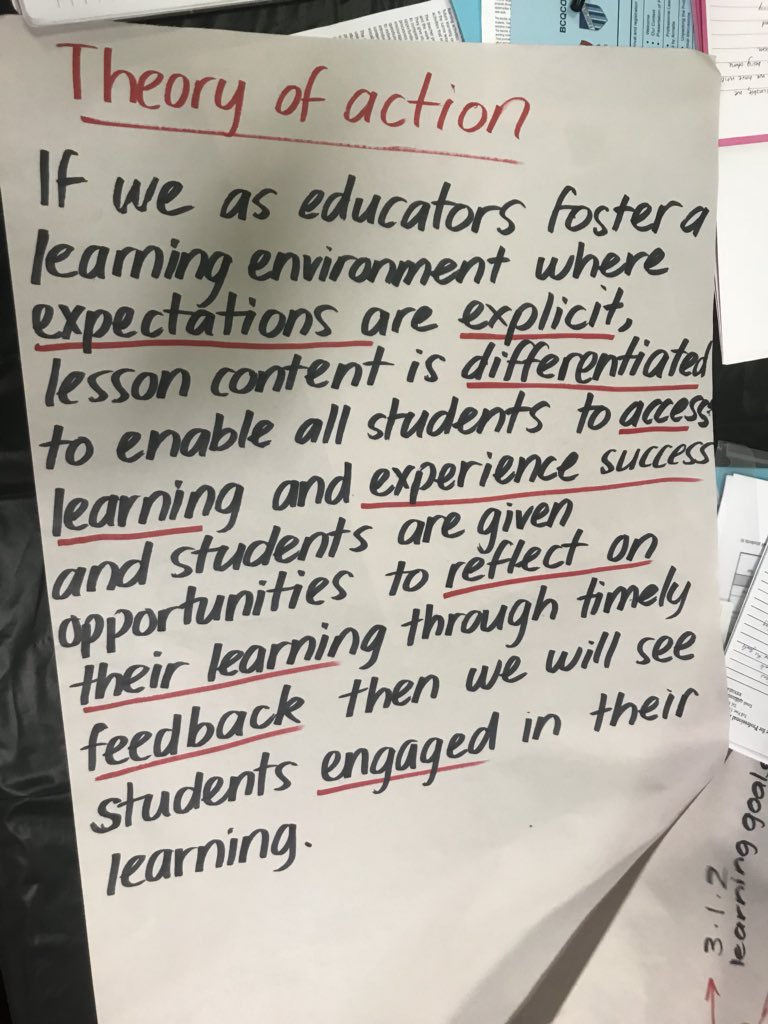 Theory of action
If we as educators foster a
learning environment where
expectations are explicit,
lesson content is differentiated
to enable all students to access
learning and experience success
and students are given
opportunities to reflect on
their learning through timely
feedback then we will see
students engaged in their
learning.
3.1.2
learning goals
BCQCO